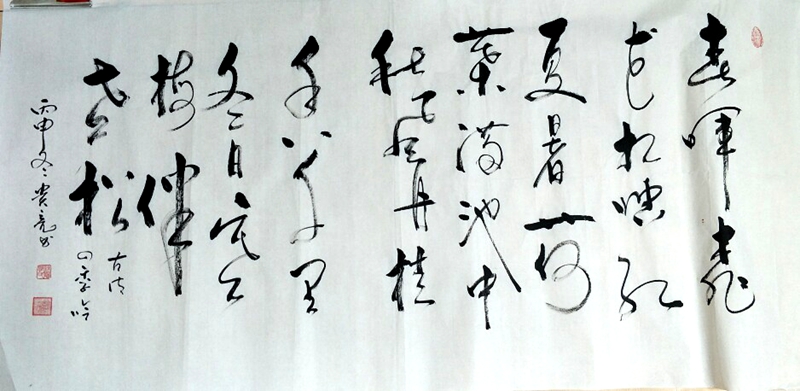 春暉桃
花相映红
夏暑荷
葉满池中
秋風丹桂
香千里
冬日寒
梅伴
老松
古诗
四季吟
丙申冬贵亮书